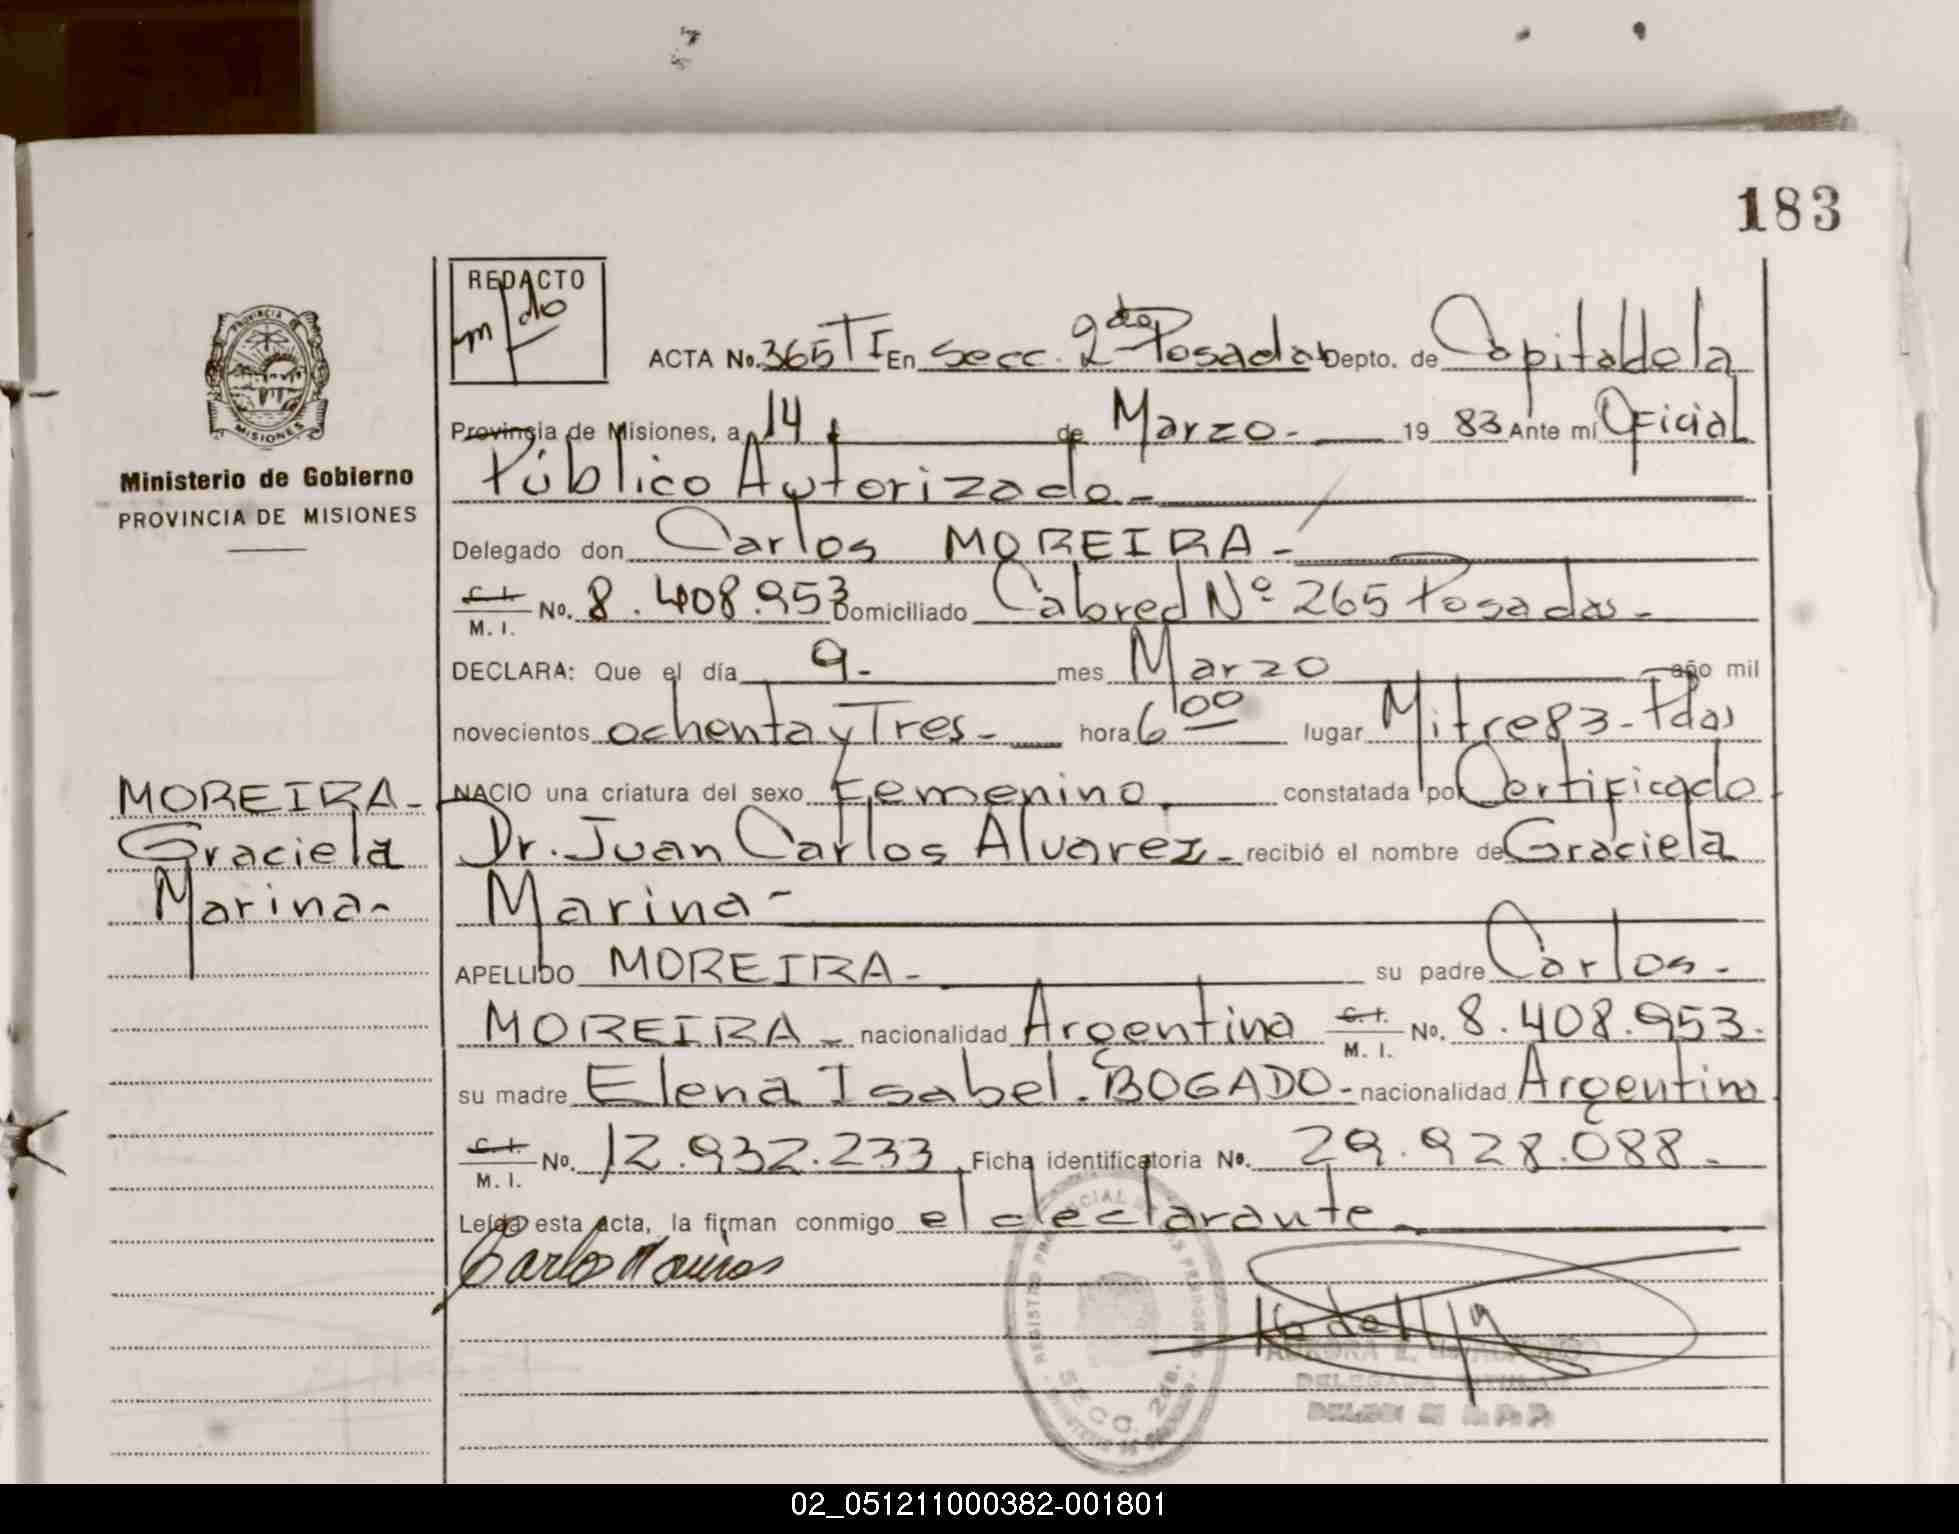 183
REDACTO
ACTA No. 365 TI En Secc. 2da Posadas Depto. de Capital de la
Provincia de Misiones, a 14 de Marzo - 19 83 Ante mí Oficial
Público Autorizado -
Delegado don Carlos MOREIRA -
C. I. M. I. No. 8.408.953 Domiciliado Cabred Nº 265 Posadas -
DECLARA: Que el día 9 - mes Marzo año mil
novecientos ochenta y Tres - hora 6 00 lugar Mitre 83 - Pdas
NACIO una criatura del sexo Femenino constatada por Certificado
Dr. Juan Carlos Alvarez - recibió el nombre de Graciela
Marina -
APELLIDO MOREIRA - su padre Carlos -
MOREIRA - nacionalidad Argentina C. I. M. I. No. 8.408.953.
su madre Elena Isabel. BOGADO - nacionalidad Argentina
C. I. M. I. No. 12.932.233 Ficha identificatoria No. 29.928.088 -
Leída esta acta, la firman conmigo el declarante
PROVINCIA DE
MISIONES
Ministerio de Gobierno
PROVINCIA DE MISIONES
MOREIRA -
Graciela
Marina -
SECC. 2da.
02_051211000382-001801